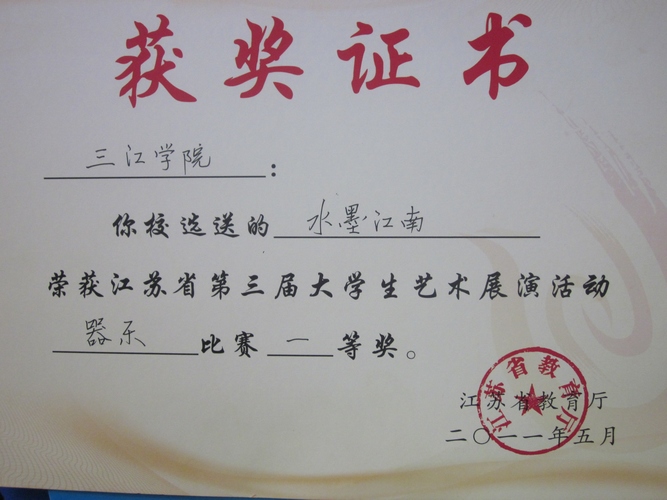 获奖证书
三江学院：
你校选送的 水墨江南
荣获江苏省第三届大学生艺术展演活动
器乐 比赛 一 等奖。
江苏省教育厅
江苏省教育厅
二〇一一年五月